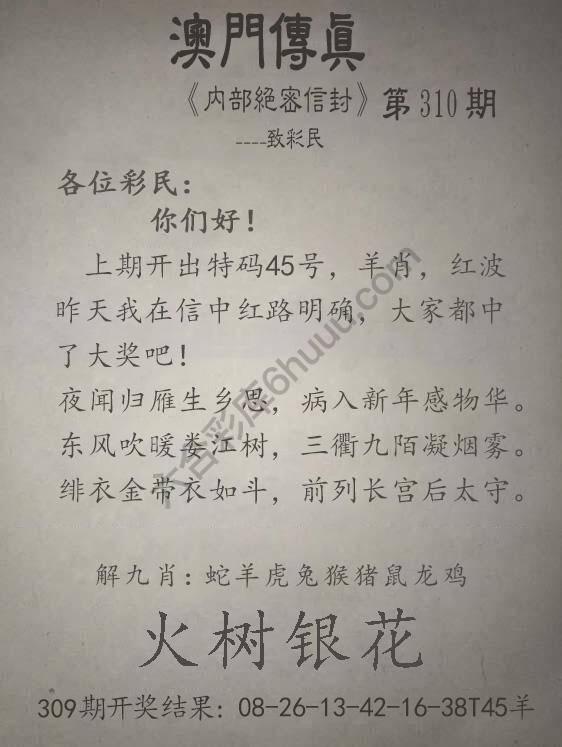 澳門傳眞
《内部絕密信封》第310期
----致彩民
各位彩民：
你们好！
上期开出特码45号，羊肖，红波
昨天我在信中红路明确，大家都中
了大奖吧！
夜闻归雁生乡思，病入新年感物华。
东风吹暖娄江树，三衢九陌凝烟雾。
绯衣金带衣如斗，前列长宫后太守。
解九肖：蛇羊虎兔猴猪鼠龙鸡
火树银花
309期开奖结果：08-26-13-42-16-38T45羊
六合彩库6huuu.com